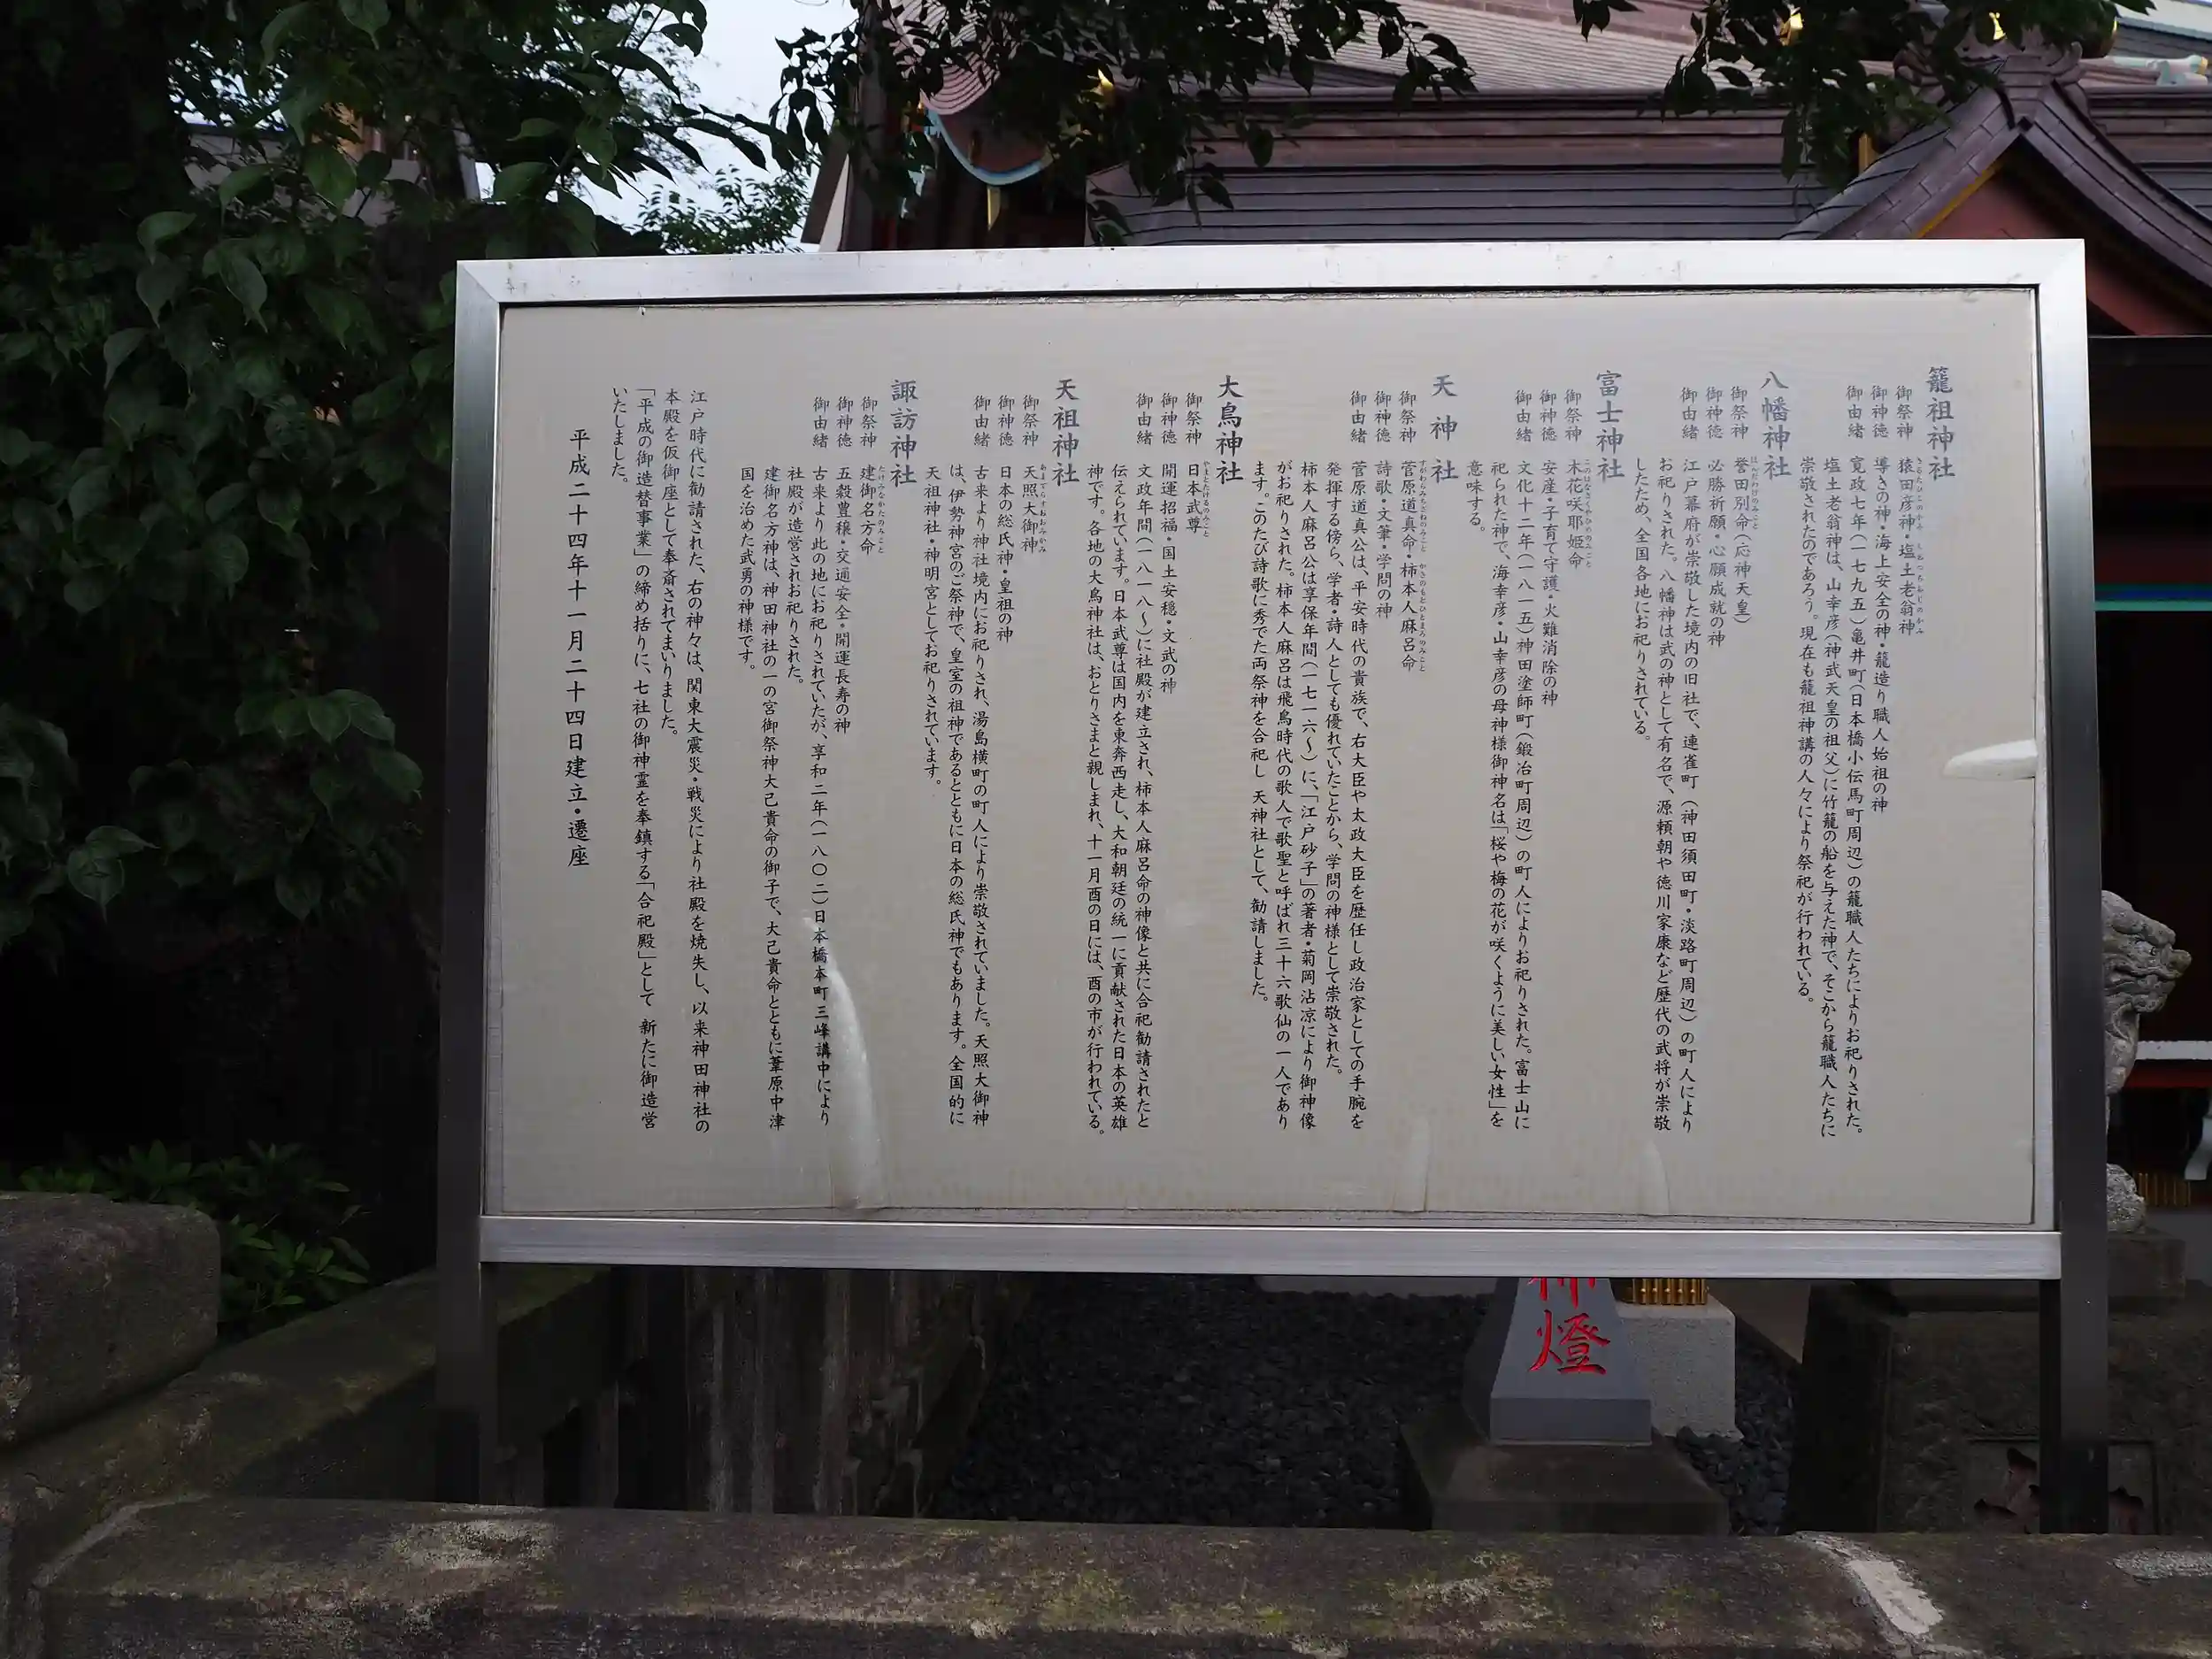 籠祖神社
御祭神　猿田彦神・塩土老翁神
さるたひこのかみ　しおつちおじのかみ
御神徳　導きの神・海上安全の神・籠造り職人始祖の神
御由緒　寛政七年（一七九五）亀井町（日本橋小伝馬町周辺）の籠職人たちによりお祀りされた。
塩土老翁神は、山幸彦（神武天皇の祖父）に竹籠の船を与えた神で、そこから籠職人たちに
崇敬されたのであろう。現在も籠祖神講の人々により祭祀が行われている。
八幡神社
御祭神　誉田別命（応神天皇）
ほんだわけのみこと
御神徳　必勝祈願・心願成就の神
御由緒　江戸幕府が崇敬した境内の旧社で、連雀町（神田須田町・淡路町周辺）の町人により
お祀りされた。八幡神は武の神として有名で、源頼朝や徳川家康など歴代の武将が崇敬
したため、全国各地にお祀りされている。
富士神社
御祭神　木花咲耶姫命
このはなさくやひめのみこと
御神徳　安産・子育て守護・火難消除の神
御由緒　文化十二年（一八一五）神田塗師町（鍛冶町周辺）の町人によりお祀りされた。富士山に
祀られた神で、海幸彦・山幸彦の母神様御神名は「桜や梅の花が咲くように美しい女性」を
意味する。
天神社
御祭神　菅原道真命・柿本人麻呂命
すがわらみちざねのみこと　かきのもとひとまろのみこと
御神徳　詩歌・文筆・学問の神
御由緒　菅原道真公は、平安時代の貴族で、右大臣や太政大臣を歴任し政治家としての手腕を
発揮する傍ら、学者・詩人としても優れていたことから、学問の神様として崇敬された。
柿本人麻呂公は享保年間（一七一六〜）に、「江戸砂子」の著者・菊岡沾凉により御神像
がお祀りされた。柿本人麻呂は飛鳥時代の歌人で歌聖と呼ばれ三十六歌仙の一人であり
ます。このたび詩歌に秀でた両祭神を合祀し 天神社として、勧請しました。
大鳥神社
御祭神　日本武尊
やまとたけるのみこと
御神徳　開運招福・国土安穏・文武の神
御由緒　文政年間（一八一八〜）に社殿が建立され、柿本人麻呂命の神像と共に合祀勧請されたと
伝えられています。日本武尊は国内を東奔西走し、大和朝廷の統一に貢献された日本の英雄
神です。各地の大鳥神社は、おとりさまと親しまれ、十一月酉の日には、酉の市が行われている。
天祖神社
御祭神　天照大御神
あまてらすおおみかみ
御神徳　日本の総氏神・皇祖の神
御由緒　古来より神社境内にお祀りされ、湯島横町の町人により崇敬されていました。天照大御神
は、伊勢神宮のご祭神で、皇室の祖神であるとともに日本の総氏神でもあります。全国的に
天祖神社・神明宮としてお祀りされています。
諏訪神社
御祭神　建御名方命
たけみなかたのみこと
御神徳　五穀豊穣・交通安全・開運長寿の神
御由緒　古来より此の地にお祀りされていたが、享和二年（一八〇二）日本橋本町三峰講中により
社殿が造営されお祀りされた。
建御名方神は、神田神社の一の宮御祭神大己貴命の御子で、大己貴命とともに葦原中津
国を治めた武勇の神様です。
江戸時代に勧請された、右の神々は、関東大震災・戦災により社殿を焼失し、以来神田神社の
本殿を仮御座として奉斎されてまいりました。
「平成の御造替事業」の締め括りに、七社の御神霊を奉鎮する「合祀殿」として 新たに御造営
いたしました。
平成二十四年十一月二十四日建立・遷座
燈